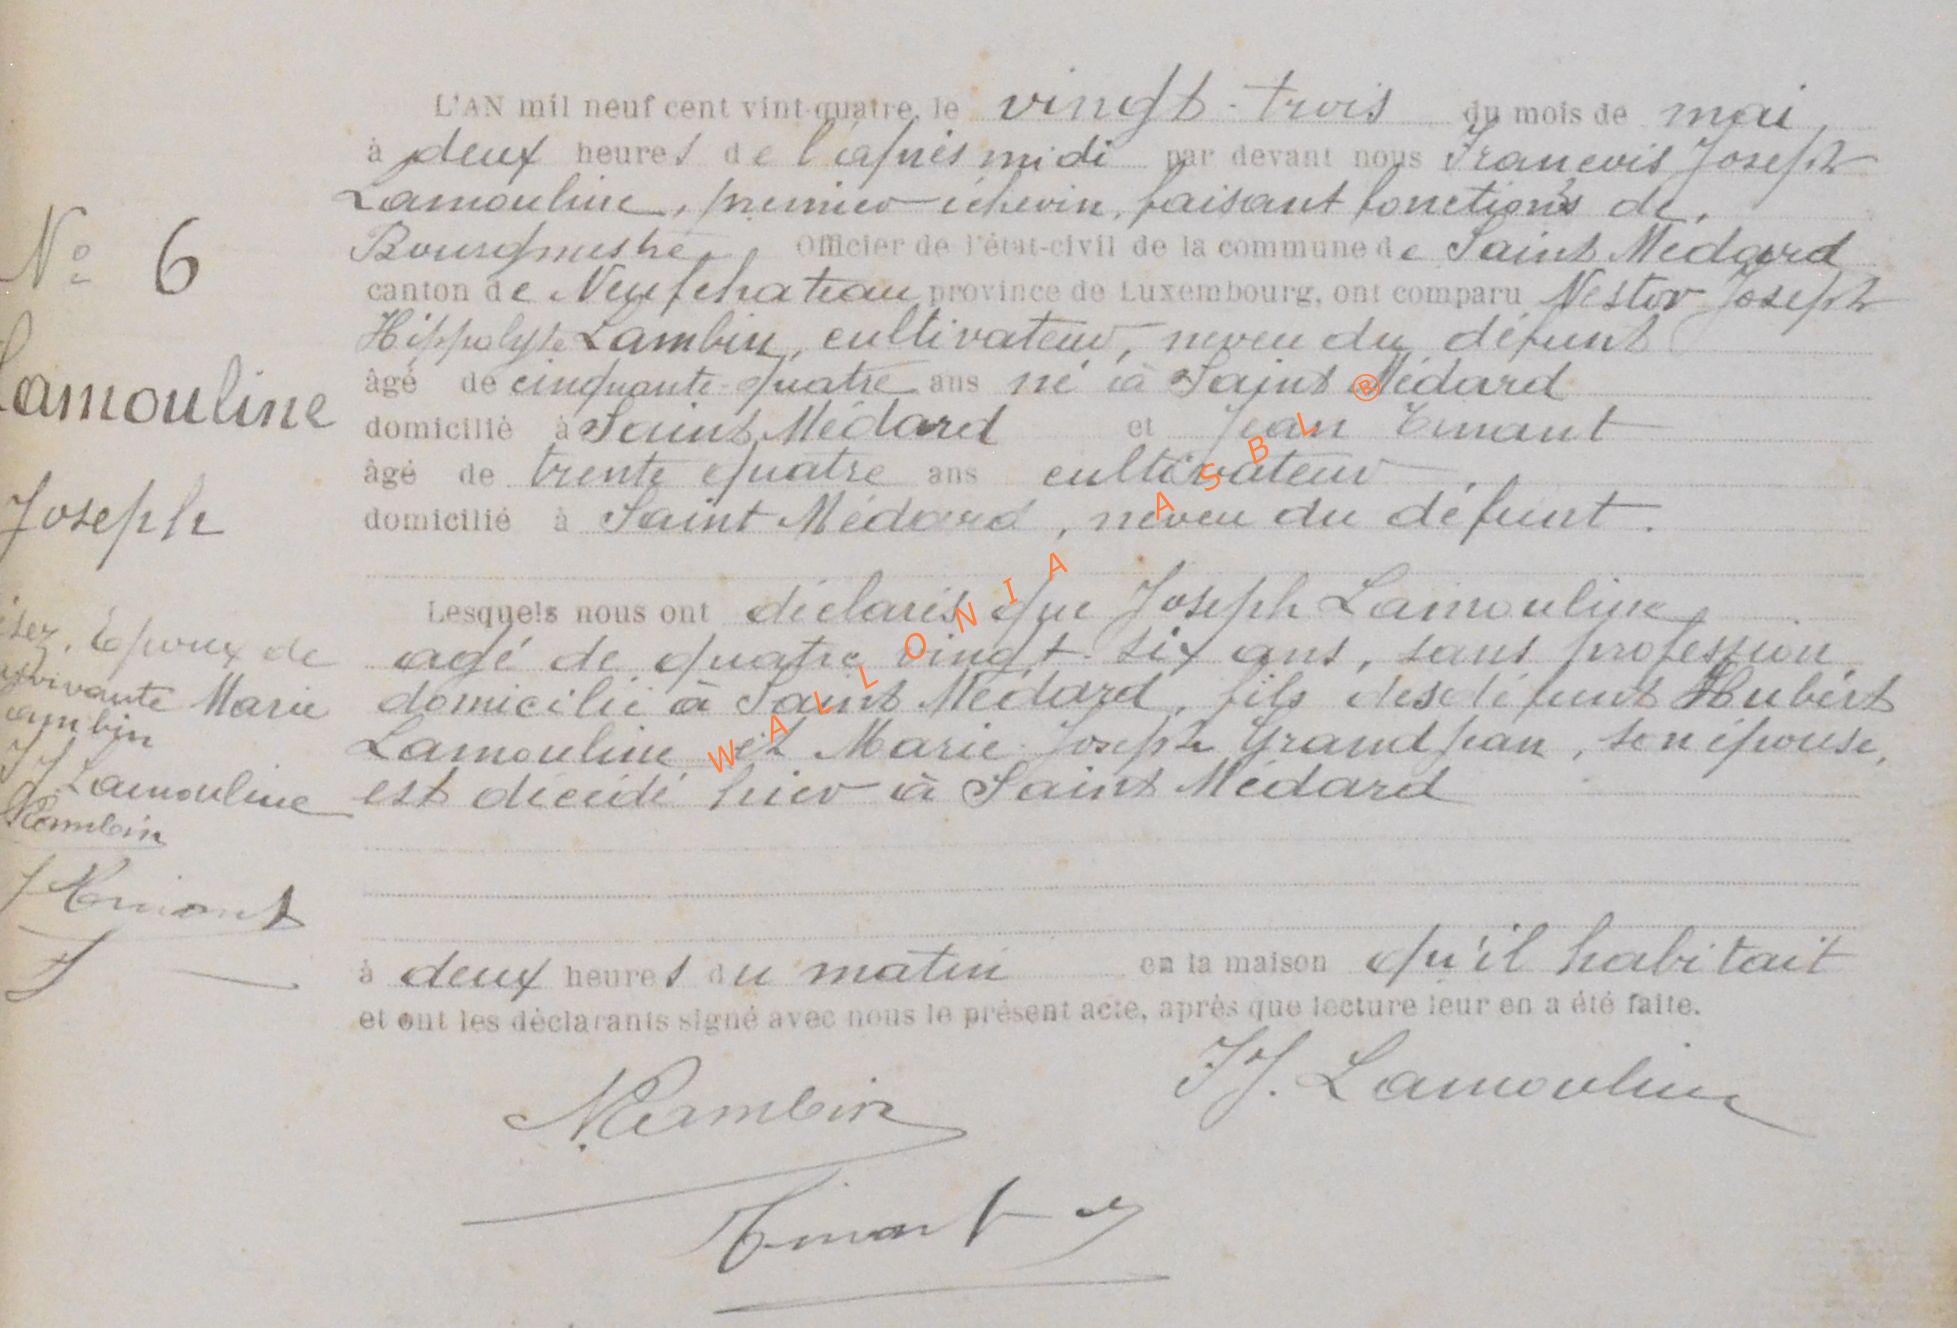 L'AN mil neuf cent vint-quatre, le vingt-trois du mois de mai,
à deux heures de l'après midi par devant nous François Joseph
Lamouline, premier échevin, faisant fonctions de
Bourgmestre, Officier de l'état-civil de la commune de Saint Médard
canton de Neufchateau province de Luxembourg, ont comparu Nestor Joseph
Hippolyte Lambin, cultivateur, neveu du défunt
âgé de cinquante-quatre ans né à Saint Médard
domicilié à Saint Médard et Jean
âgé de trente quatre ans cultivateur,
domicilié à Saint Médard, neveu du défunt.
Lesquels nous ont déclarés que Joseph Lamouline,
agé de quatre vingt-six ans, sans profession,
domicilié à Saint Médard, fils des défunts Hubert
Lamouline et Marie-Joseph Grandjean, son épouse,
est décédé hier à Saint Médard
à deux heures du matin en la maison qu'il habitait
et ont les déclarants signé avec nous le présent acte, après que lecture leur en a été faite.
N. Lambin
J J. Lamouline
N° 6
Lamouline
Joseph
Epoux de
Marie
Lamouline
Lambin
WALLONIA ASBL ®